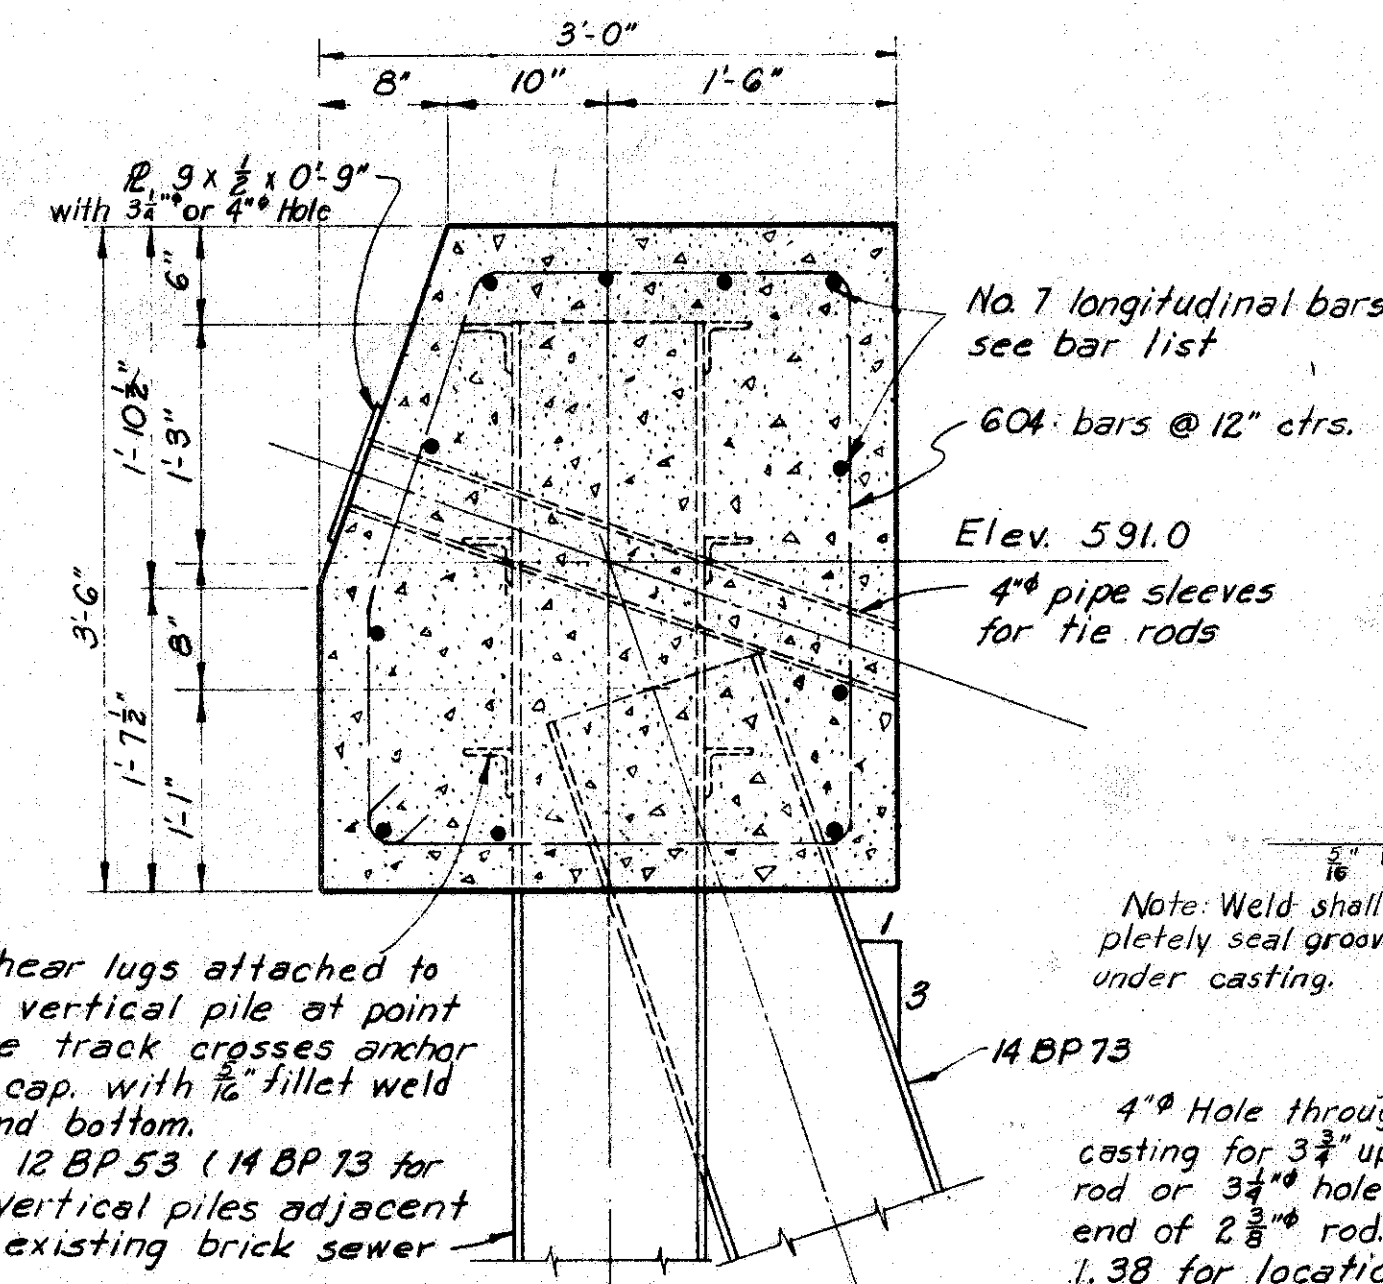 3'-0"
8" 10" 1'-6"
PL 9 x 1/2 x 0'-9"
with 3 1/4"φ or 4"φ Hole
6"
1'-10 1/2"
1'-3"
3'-6"
8"
1'-7 1/2"
1'-1"
No. 7 longitudinal bars
see bar list
604 bars @ 12" ctrs.
Elev. 591.0
4"φ pipe sleeves
for tie rods
5/16"
Note: Weld shall
pletely seal groov
under casting.
1
3
14 BP 73
hear lugs attached to
vertical pile at point
e track crosses anchor
cap. with 5/16" fillet weld
nd bottom.
12 BP 53 (14 BP 73 for
vertical piles adjacent
existing brick sewer
4"φ Hole throug
casting for 3 3/4" up
rod or 3 1/4"φ hole
end of 2 3/8"φ rod.
1.38 for locatio